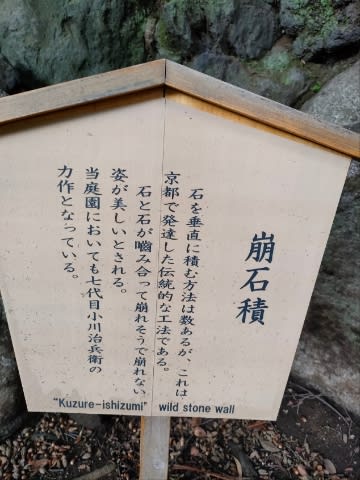 崩石積
石を垂直に積む方法は数あるが、これは
京都で発達した伝統的な工法である。
石と石が嚙み合って崩れそうで崩れない
姿が美しいとされる。
当庭園においても七代目小川治兵衛の
力作となっている。
"Kuzure-ishizumi" wild stone wall